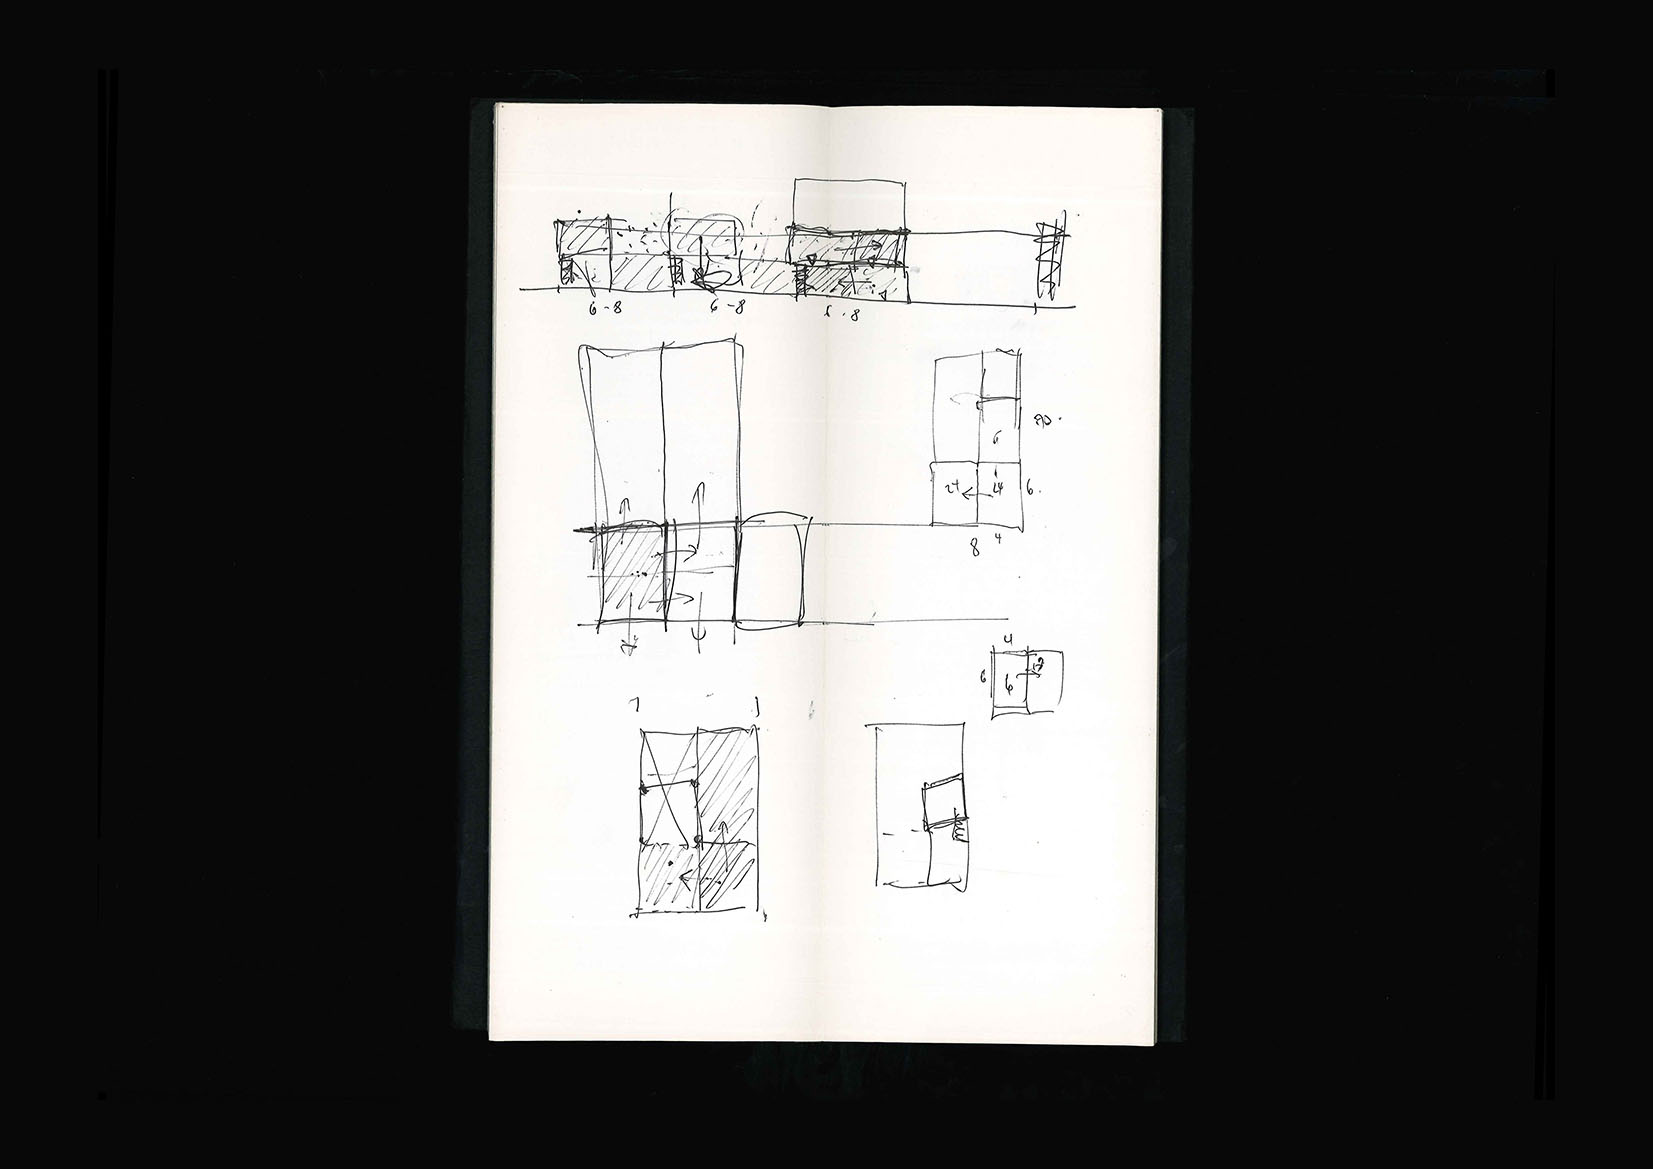 6-8 6-8 6.8
6
24 24 6.
8 4
4
6 6